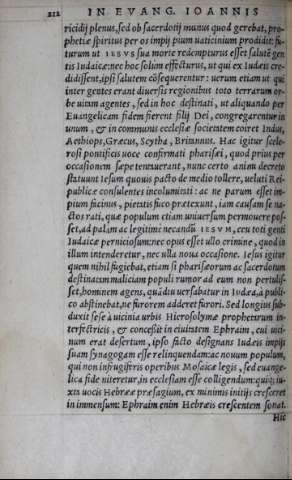 212 IN EVANG. IOANNIS
ricidij plenus, sed ob sacerdotij munus quod gerebat, pro-
phetiæ spiritus per os impij pium uaticinium prodidit: fu-
turum ut IESVS sua morte redempturus esset salutē gen
tis Iudaicæ: nec hoc solùm effecturus, ut qui ex Iudæis cre-
didissent, ipsi salutem cōsequerentur: uerum etiam ut qui
inter gentes erant diuersis regionibus toto terrarum or-
be uixm agentes, sed in hoc destinati, ut aliquando per
Euangelicam fidem fierent filij Dei, congregarentur in
unum, & in communis ecclesiæ societatem coiret Indus,
Aethiops, Græcus, Scytha, Britannus. Hac igitur scele-
rosi pontificis uoce confirmati pharisæi, quod prius per
occasionem sæpe tentauerant, nunc certo animi decreto
statuunt Iesum quouis pacto de medio tollere, ueluti Rei-
publicæ consulentes incolumitati: ac ne parum esset im-
pium facinus, pietatis fuco prætexunt, iam causam se na-
ctos rati, quæ populum etiam uniuersum permouere pos-
set, ad palam ac legitimè necandū IESVM, ceu toti genti
Iudaicæ perniciosum: nec opus esset ullo crimine, quod in
illum intenderetur, nec ulla noua occasione. Iesus igitur
quem nihil fugiebat, etiam si pharisæorum ac sacerdotum
destinatam maliciam populi rumor ad eum non pertulis-
set, hominem agens, quādiu uersabatur in Iudæa, à publi-
co abstinebat, ne furorem adderet furori. Sed longius sub-
duxit sese à uicinia urbis Hierosolymæ prophetarum in-
terfectricis, & concessit in ciuitatem Ephraim, cui uici-
num erat desertum, ipso facto designans Iudæis impijs
suam synagogam esse relinquendam: ac nouum populum,
qui non infrugiferis operibus Mosaicæ legis, sed euange-
lica fide niteretur, in ecclesiam esse colligendum: quiq; iu-
xta uocis Hebrææ præsagium, ex minimis initijs cresceret
in immensum: Ephraim enim Hebræis crescentem sonat.
Hic